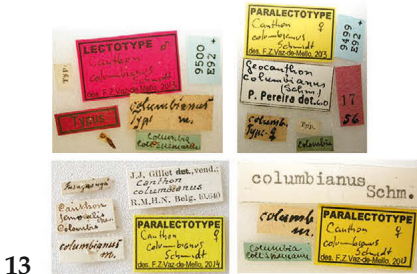 LECTOTYPE ♂
Canthon
columbianus
Schmidt
des. F.Z.Vaz-de-Mello, 2013
Typ.
9500
E92 +
Typus
columbianus
Typ m.
Columbia
PARALECTOTYPE
Canthon ♀
columbianus
Schmidt
des. F.Z.Vaz-de-Mello, 2013
9499
E92 +
Geocanthon
columbianus
(Schm.)
P. Pereira det.60
17
56
columb.
Typ.
Columbia
J.J. Gillet det., vend.;
Canthon
columbianus
R.M.H.N. Belg. 10.640
Canthon
Columbia
columbianus
m.
PARALECTOTYPE
Canthon ♀
columbianus
Schmidt
des. F.Z.Vaz-de-Mello, 2014
columbianus
Schm.
columb
m.
Columbia
PARALECTOTYPE
Canthon ♀
columbianus
Schmidt
des. F.Z.Vaz-de-Mello, 2013
13